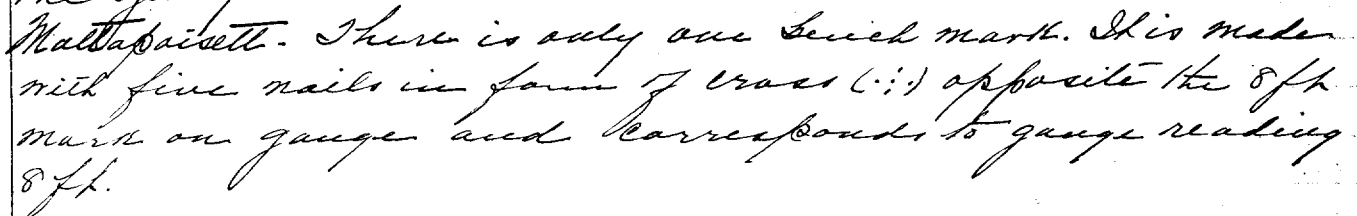 Mattapoisett. There is only one bench mark. It is made
with five nails in form of cross (·:·) opposite the 8 ft
mark on gauge and corresponds to gauge reading
8 ft.